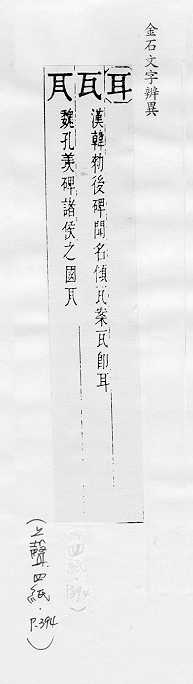 金石文字辨異
耳
瓦 漢韓勑後碑聞名傎瓦案瓦即耳
魏孔美碑諸侯之國
(上聲四紙．P.394)